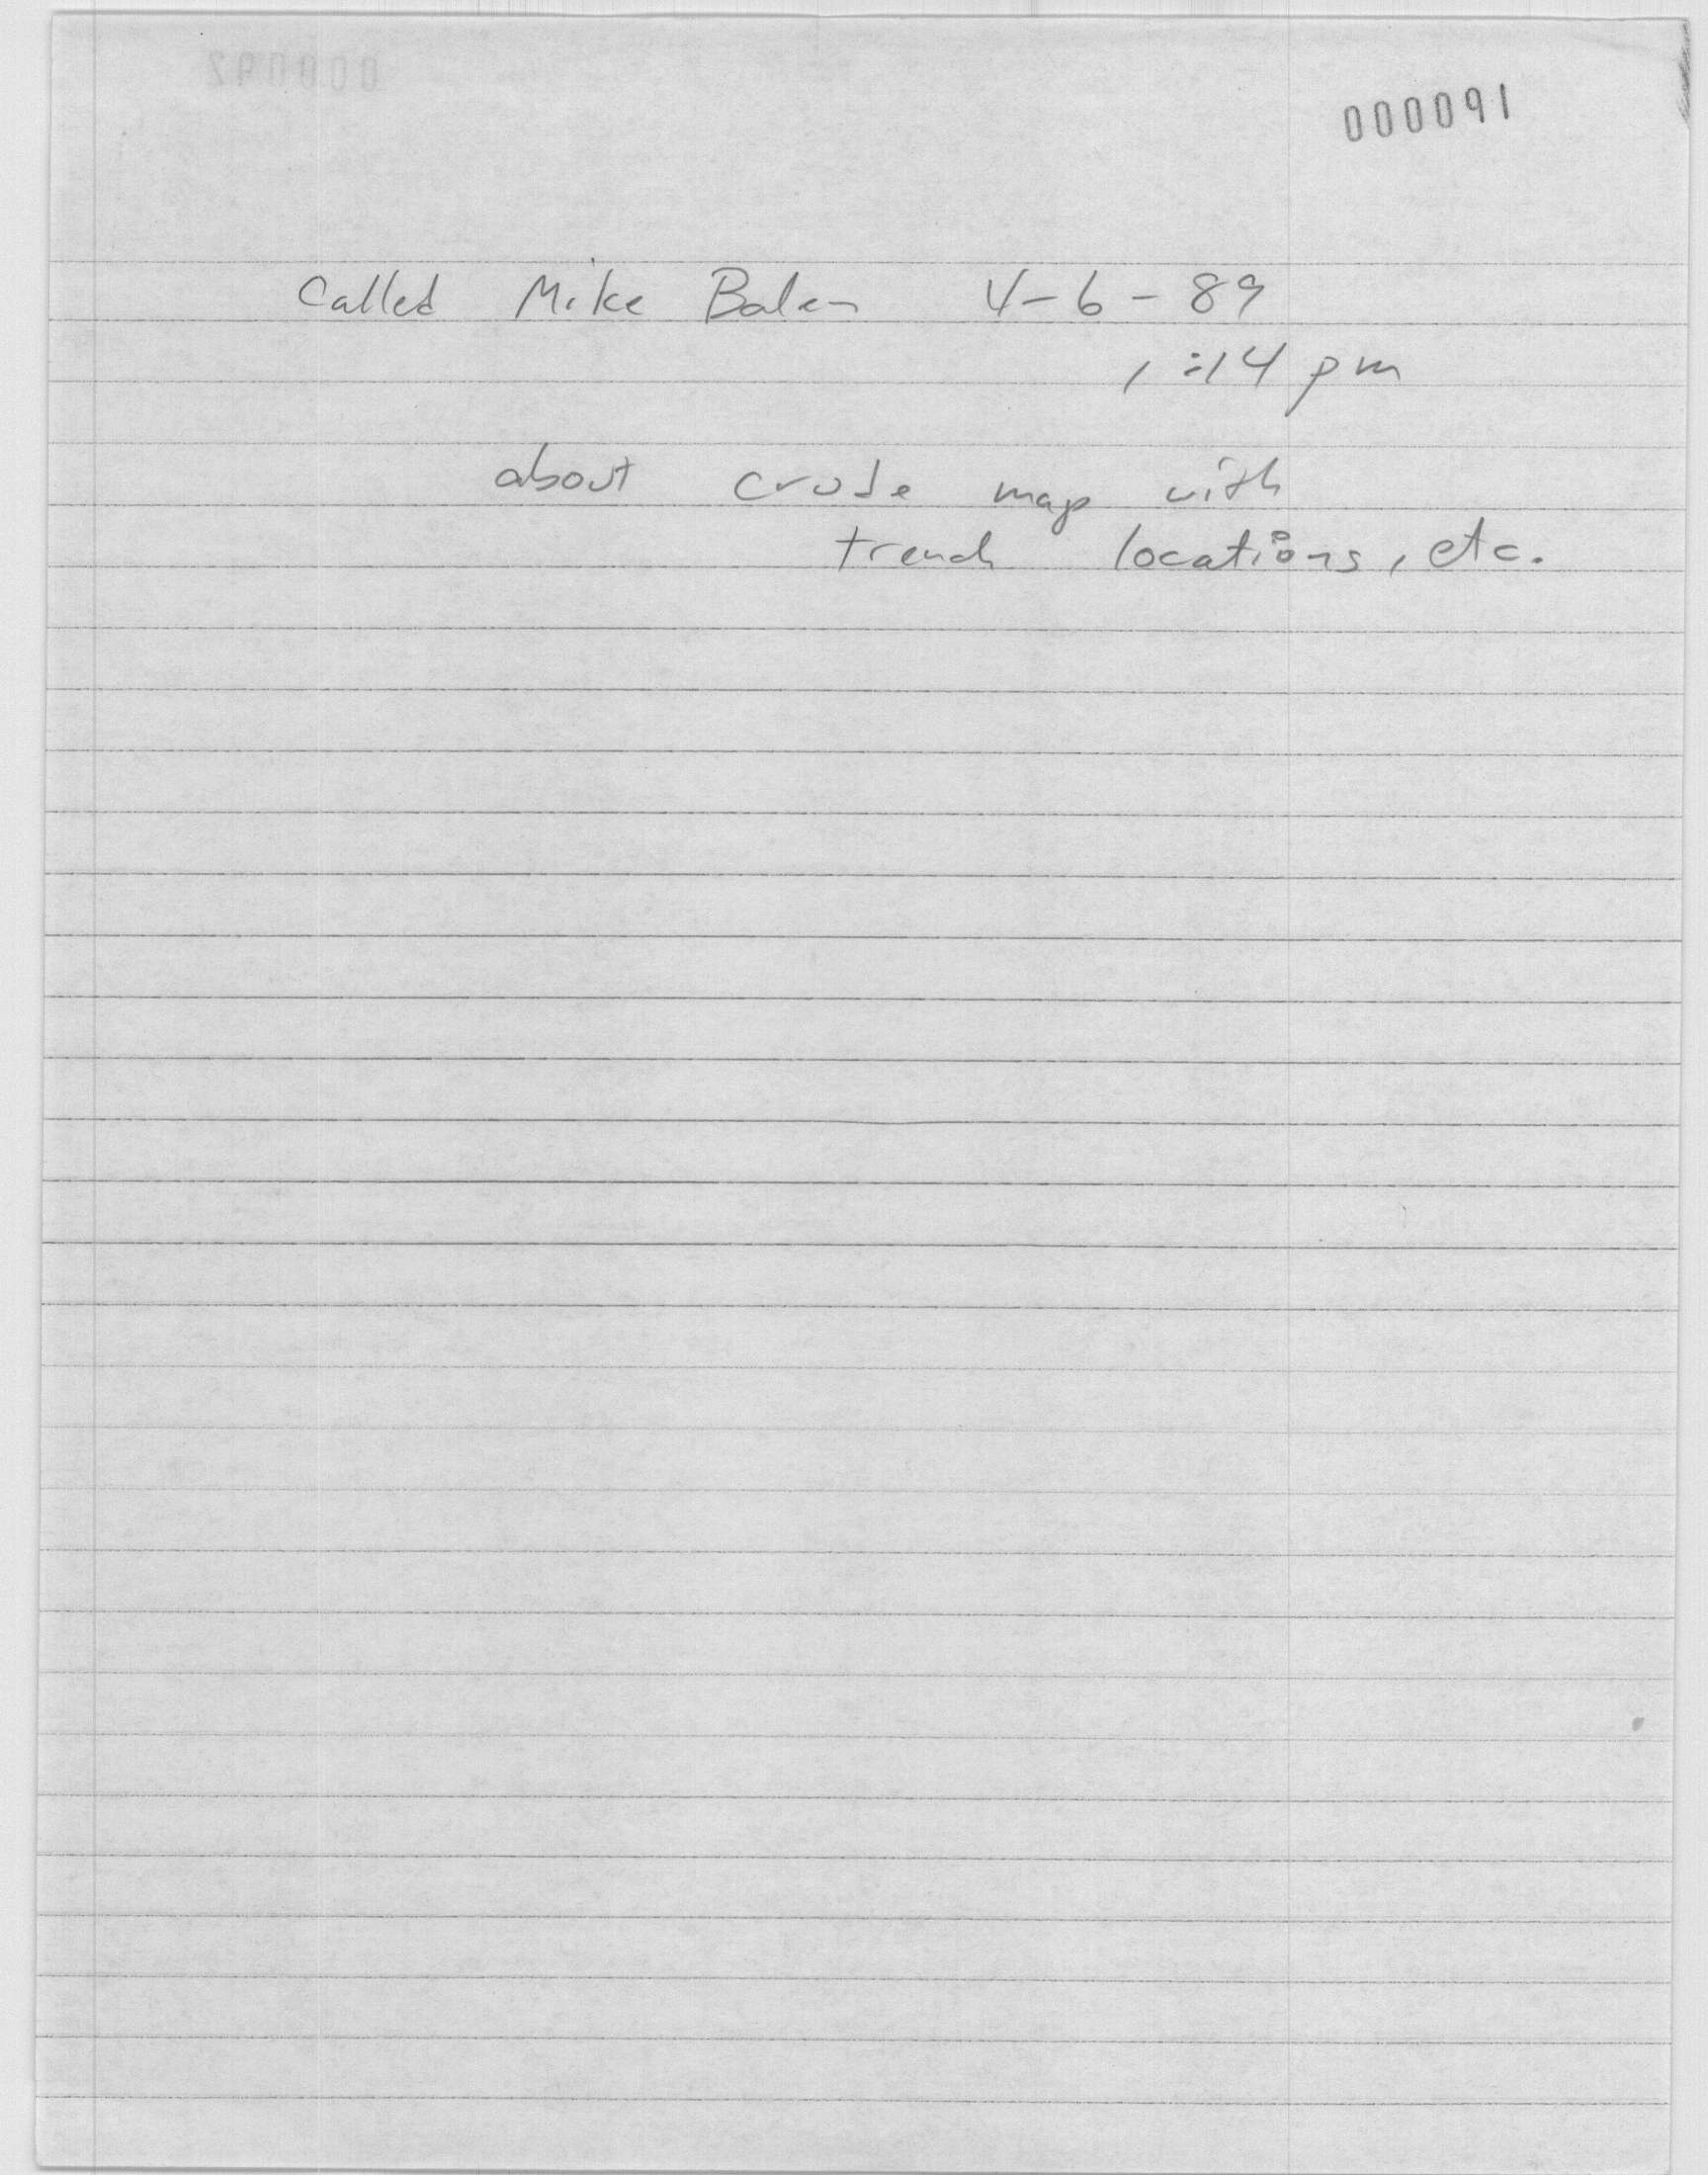 000091
Called Mike Balen 4-6-89
1:14 pm
about crude map with
trench locations, etc.